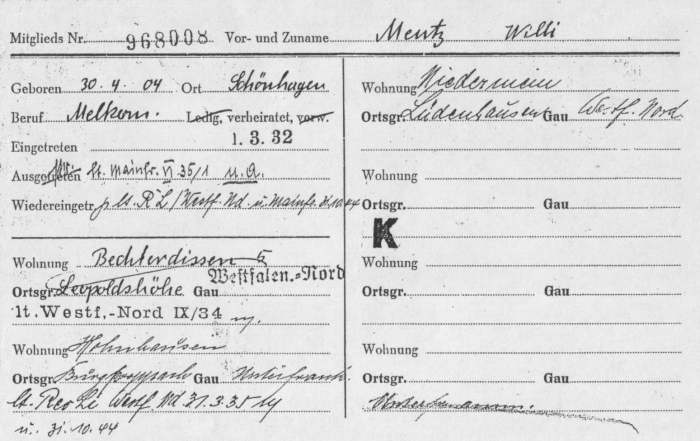 Mitglieds Nr. 968008 Vor- und Zuname Mentz Willi
Geboren 30. 4. 04 Ort Schönhagen
Beruf Melkerm. Ledig, verheiratet, verw.
Eingetreten 1. 3. 32
Ausgetreten lt. Mainfr. VI 35/1 u. a.
Wiedereingetr. lt. RL/Westf. Nd. u. Mainfr.
Wohnung Bechterdissen 5
Ortsgr. Leopoldshöhe Gau Westfalen-Nord
lt. Westf.-Nord IX/34
Wohnung Holnhausen
Ortsgr. Burgpreppach Gau Unterfrank.
lt. Westf Nd 31.3.35
u. 31.10.44
Wohnung Niedermein
Ortsgr. Lüdenhausen Gau Westf. Nord
Wohnung
Ortsgr. Gau
K
Wohnung
Ortsgr. Gau
Wohnung
Ortsgr. Gau